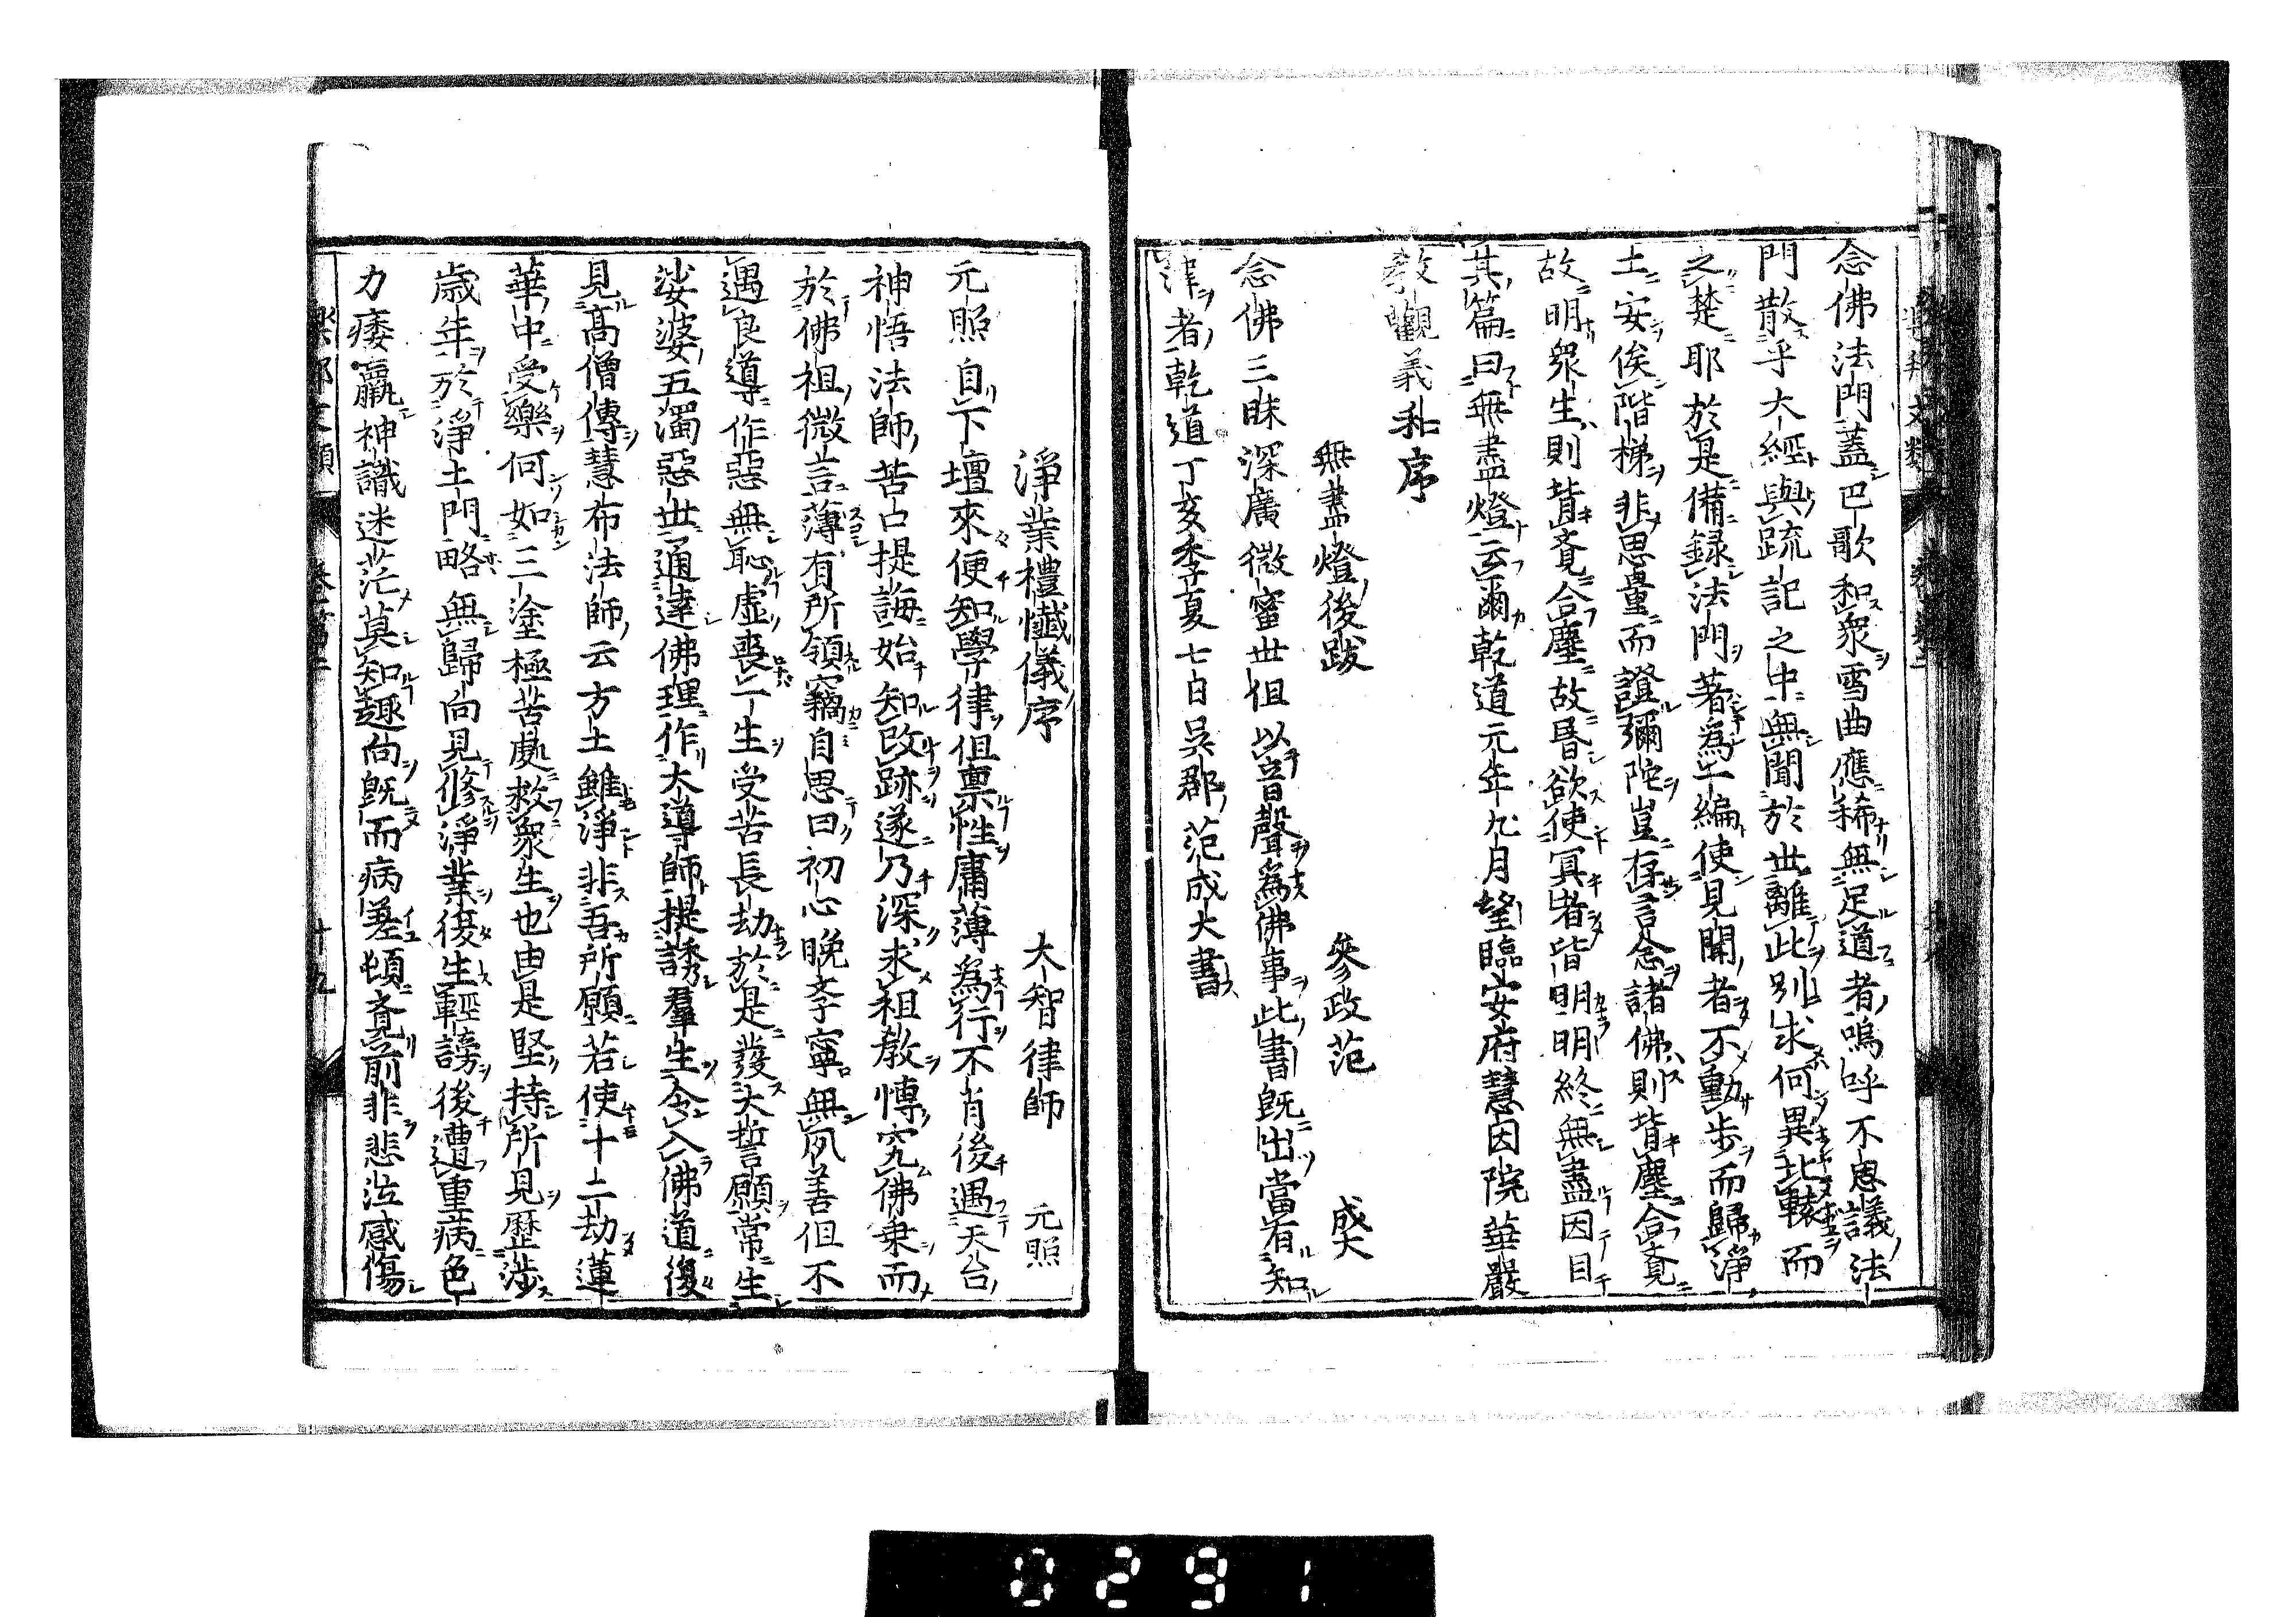 念佛法門蓋巴歌和衆雪曲應稀無足道者嗚呼不思議法
門散乎大經與疏記之中無聞於世離此別求何異北轅而
之楚耶於是備録法門著為一編使見聞者不動步而歸淨
土安俟階梯非思量而證彌陀豈存言念諸佛則背塵合覓
故明衆生則背覓合塵故昬欲使冥者皆明明終無盡因目
其篇曰無盡燈云爾乾道元年九月望臨安府慧因院華嚴
教觀義和序
無盡燈後跋 參政范 成大
念佛三昧深廣微蜜世但以音聲為佛事此書既出當有知
津者乾道丁亥季夏七日吳郡范成大書
淨業禮懺儀序 大智律師 元照
元照自下壇來便知學律但禀性庸薄為行不肖後遇天台
神悟法師苦口提誨始知改跡遂乃深求祖教博究佛乗而
於佛祖微言薄有所領竊自思曰初心晚孝寧無夙善但不
遇良導作惡無恥虛喪一生受苦長劫於是發大誓願常生
娑婆五濁惡世通達佛理作大導師提誘羣生令入佛道復
見高僧傳慧布法師云方土雖淨非吾所願若使十二劫蓮
華中受樂何如三塗極苦處救衆生也由是堅持所見歷涉
歳年於淨土門略無歸向見修淨業復生輕謗後遭重病色
力痿羸神識迷茫莫知趣向既而病差頓覓前非悲泣感傷
樂邦文類 卷第二 十九
0291